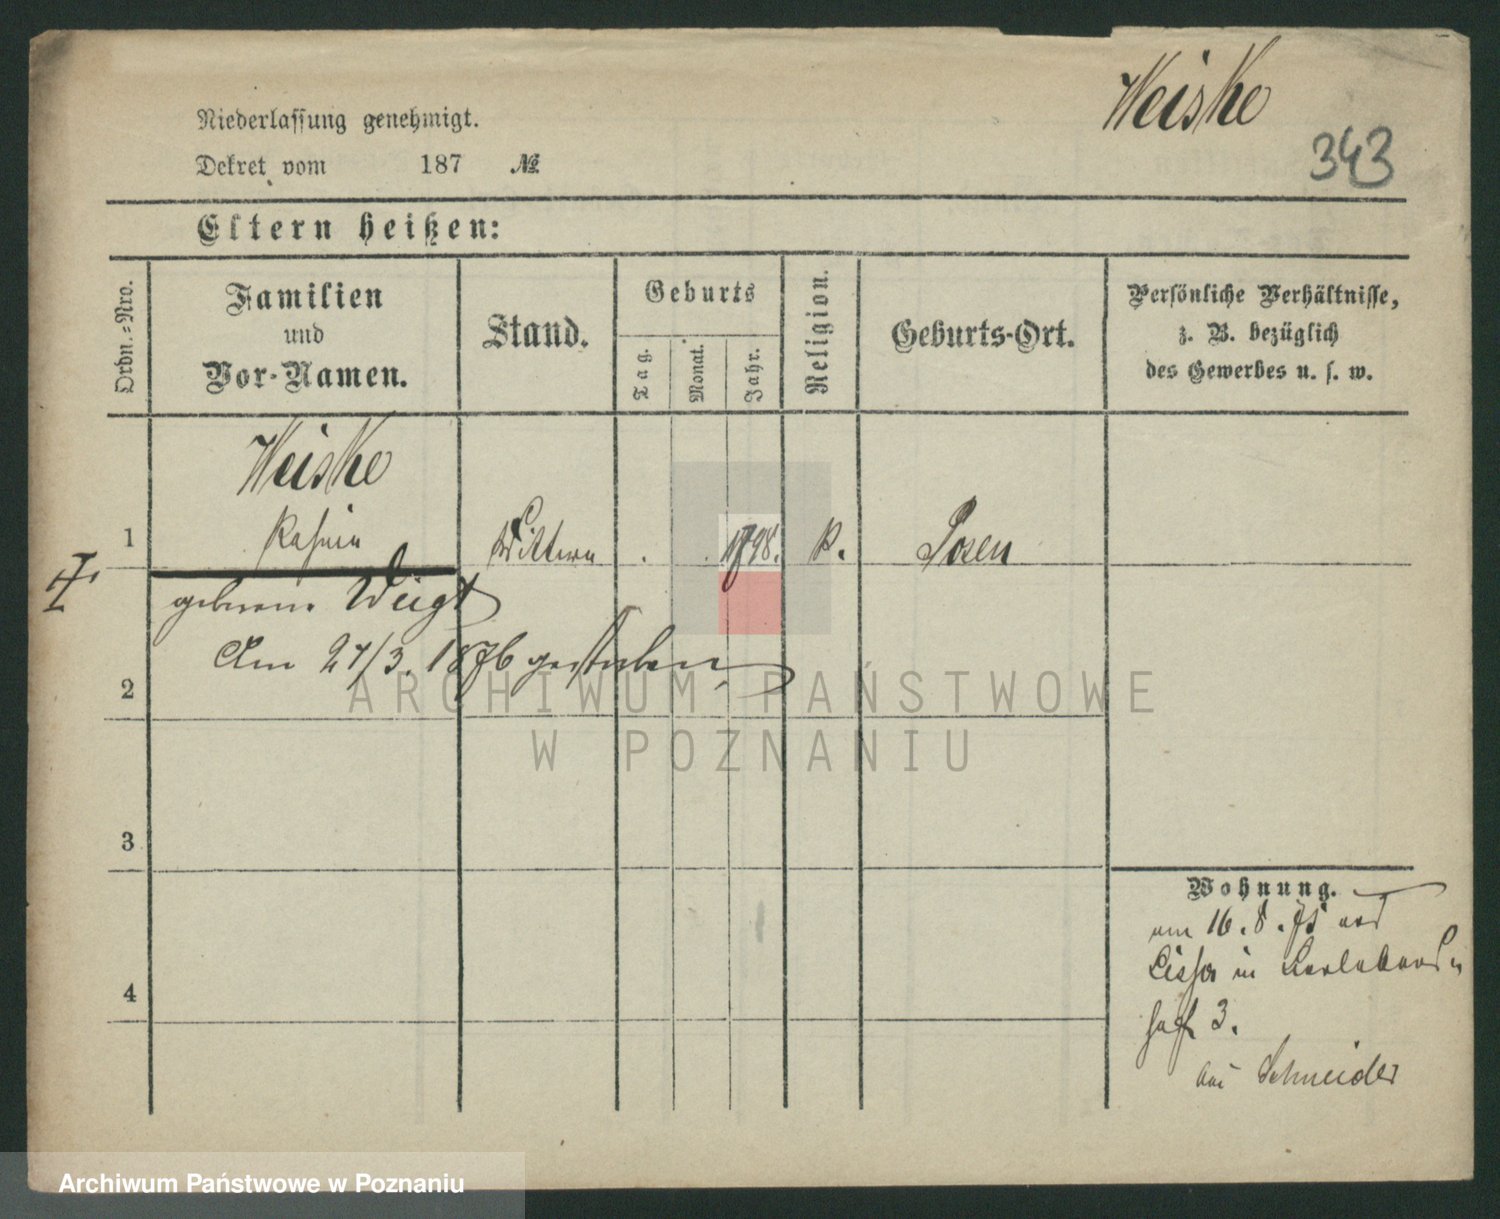 Weiske
343
Niederlassung genehmigt.
Dekret vom 187 №
Eltern heißen:
Ordn.-Nro.
Familien
und
Vor-Namen.
Stand.
Geburts
Tag.
Monat.
Jahr.
Religion.
Geburts-Ort.
Persönliche Verhältnisse,
z. B. bezüglich
des Gewerbes u. s. w.
Weiske
1 1798. Posen
geborene Weigt
Am 27/3. 1876 gestorben
2
3
4
Wohnung.
am 16. 8. 75
Lissa in
3.
bei Schneider
ARCHIWUM PAŃSTWOWE
W POZNANIU
Archiwum Państwowe w Poznaniu